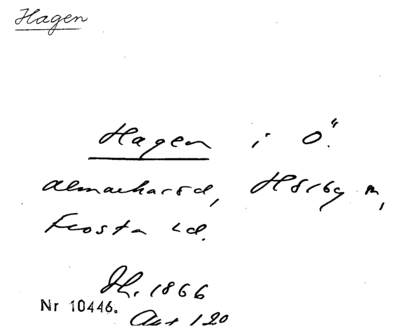 Hagen
Hagen i Ö.
allmänharad, Hörby sn,
Frosta hd.
Th. 1866
Nr 10446. Akt 120